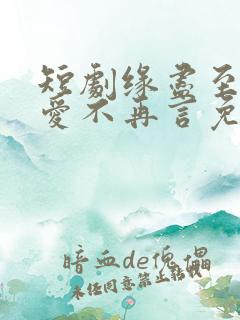 短劇缘盡至
愛不再言免
暗血de傀儡
未经同意禁止转载